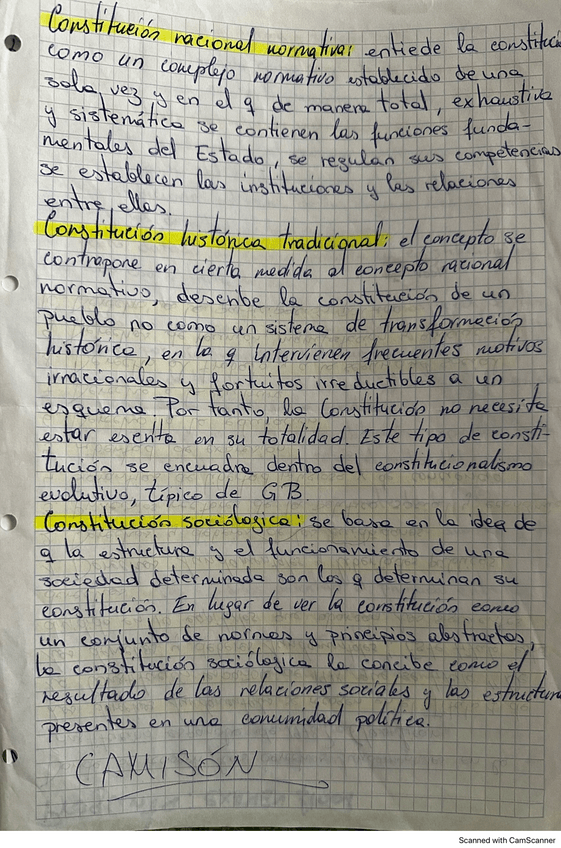 Constitución racional normativa: entiede la constituci
como un complejo normativo establecido de una
sola vez y en el q de manera total, exhaustiva
y sistemática se contienen las funciones funda-
mentales del Estado, se regulan sus competencias
se establecen las instituciones y las relaciones
entre ellas.
Constitución histórica tradicional: el concepto se
contrapone en cierta medida al concepto racional
normativo, describe la constitución de un
pueblo no como un sistema de transformación
histórica, en la q intervienen frecuentes motivos
irracionales y fortuitos irreductibles a un
esquema. Por tanto, la Constitución no necesita
estar escrita en su totalidad. Este tipo de consti-
tución se encuadra dentro del constitucionalismo
evolutivo, típico de GB.
Constitución sociólogica: se basa en la idea de
q la estructura y el funcionamiento de una
sociedad determinada son los q determinan su
constitución. En lugar de ver la constitución como
un conjunto de normas y principios abstractos,
la constitución sociólogica la concibe como el
resultado de las relaciones sociales y las estructura
presentes en una comunidad política.
CAMISÓN
Scanned with CamScanner